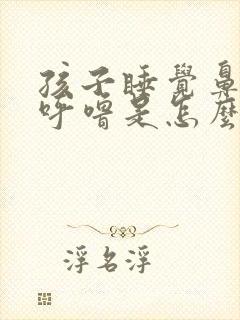 孩子睡覺鼻
呼嚕是怎麼
浮名浮